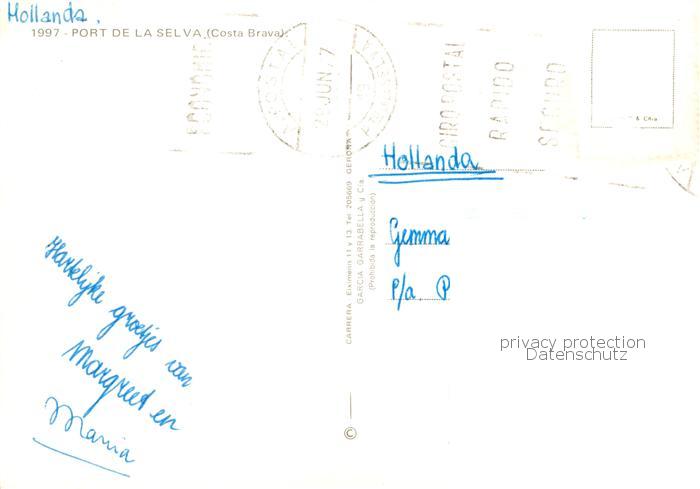 Hollanda.
1997 - PORT DE LA SELVA (Costa Brava)
ECONOMIE
28 JUN. 7
GIRO POSTAL
RAPIDO
SEGURO
& Cñia
Hollanda
Gemma
P/a. P
Hartelijke groetjes van
Margreet en
Maria
CARRERA, Eiximenis 11 y 13. Tel. 205669 GERONA
GARCIA GARRABELLA y Cía.
(Prohibida la reproducción)
©
privacy protection
Datenschutz